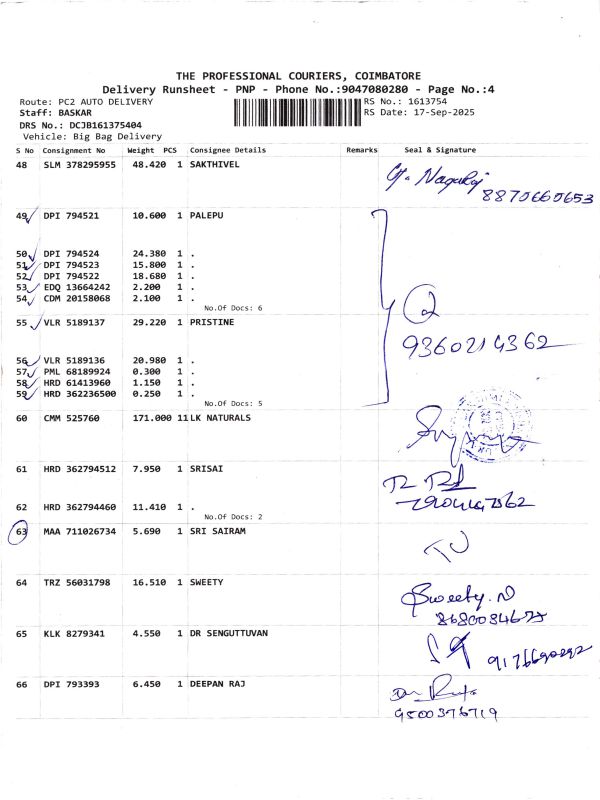 THE PROFESSIONAL COURIERS, COIMBATORE
Delivery Runsheet - PNP - Phone No.:9047080280 - Page No.:4
Route: PC2 AUTO DELIVERY RS No.: 1613754
Staff: BASKAR RS Date: 17-Sep-2025
DRS No.: DCJB161375404
Vehicle: Big Bag Delivery
S No Consignment No Weight PCS Consignee Details Remarks Seal & Signature
48 SLM 378295955 48.420 1 SAKTHIVEL
G. Nagaraj
8870660653
49 DPI 794521 10.600 1 PALEPU
50 DPI 794524 24.380 1 .
51 DPI 794523 15.800 1 .
52 DPI 794522 18.680 1 .
53 EDQ 13664242 2.200 1 .
54 CDM 20158068 2.100 1 .
No.Of Docs: 6
55 VLR 5189137 29.220 1 PRISTINE
9360214362
56 VLR 5189136 20.980 1 .
57 PML 68189924 0.300 1 .
58 HRD 61413960 1.150 1 .
59 HRD 362236500 0.250 1 .
No.Of Docs: 5
60 CMM 525760 171.000 11 LK NATURALS
61 HRD 362794512 7.950 1 SRISAI
62 HRD 362794460 11.410 1 .
No.Of Docs: 2
63 MAA 711026734 5.690 1 SRI SAIRAM
64 TRZ 56031798 16.510 1 SWEETY
Sweety.N
65 KLK 8279341 4.550 1 DR SENGUTTUVAN
66 DPI 793393 6.450 1 DEEPAN RAJ
9500376719